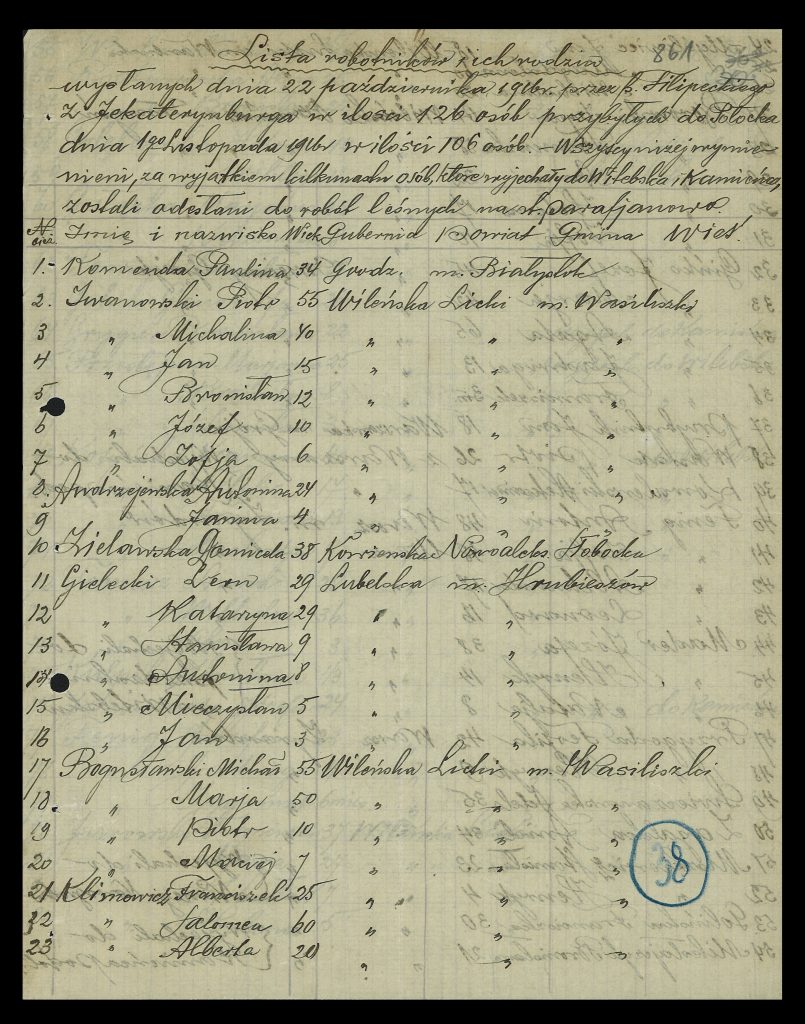 Lista robotników i ich rodzin 861
wysłanych dnia 22 października 1916r. przez p. Filipeckiego
z Jekaterynburga w ilości 126 osób przybyłych do Połocka
dnia 1go Listopada 1916r w ilości 106 osób. - Wszyscy niżej wymie-
nieni, za wyjątkiem kilkunastu osób, które wyjechały do Witebska i Kamieńca,
zostali odesłani do robót leśnych na st. Parafjanowo.
Imię i nazwisko Wiek Gubernia Powiat Gmina Wieś.
1. Komenda Paulina 34 Grodz. m. Białystok
2. Iwanowski Piotr 55 Wileńska Lidzki m. Wasiliszki
3 " Michalina 40 " " "
4 " Jan 15 " " "
5 " Bronisław 12 " " "
6 " Józef 10 " " "
7 " Zofja 6 " " "
8. Andrzejewska Antonina 24 " " "
9 " Janina 4 " " "
10. Zielawska Domicela 38 Kowieńska Nowoaleks. Słobodka
11 Gielecki Leon 29 Lubelska m. Hrubieszów
12 " Katarzyna 29 " "
13 " Stanisława 9 " "
14 " Antonina 8 " "
15 " Mieczysław 5 " "
16 " Jan 3 " "
17 Bogusławski Michaś 55 Wileńska Lidzki m. Wasiliszki
18. " Marja 50 " " "
19 " Piotr 10 " " "
20 " Maciej 7 " " "
38
21 Klimowicz Franciszek 25 " " "
22 " Salomea 60 " " "
23 " Alberta 20 " " "